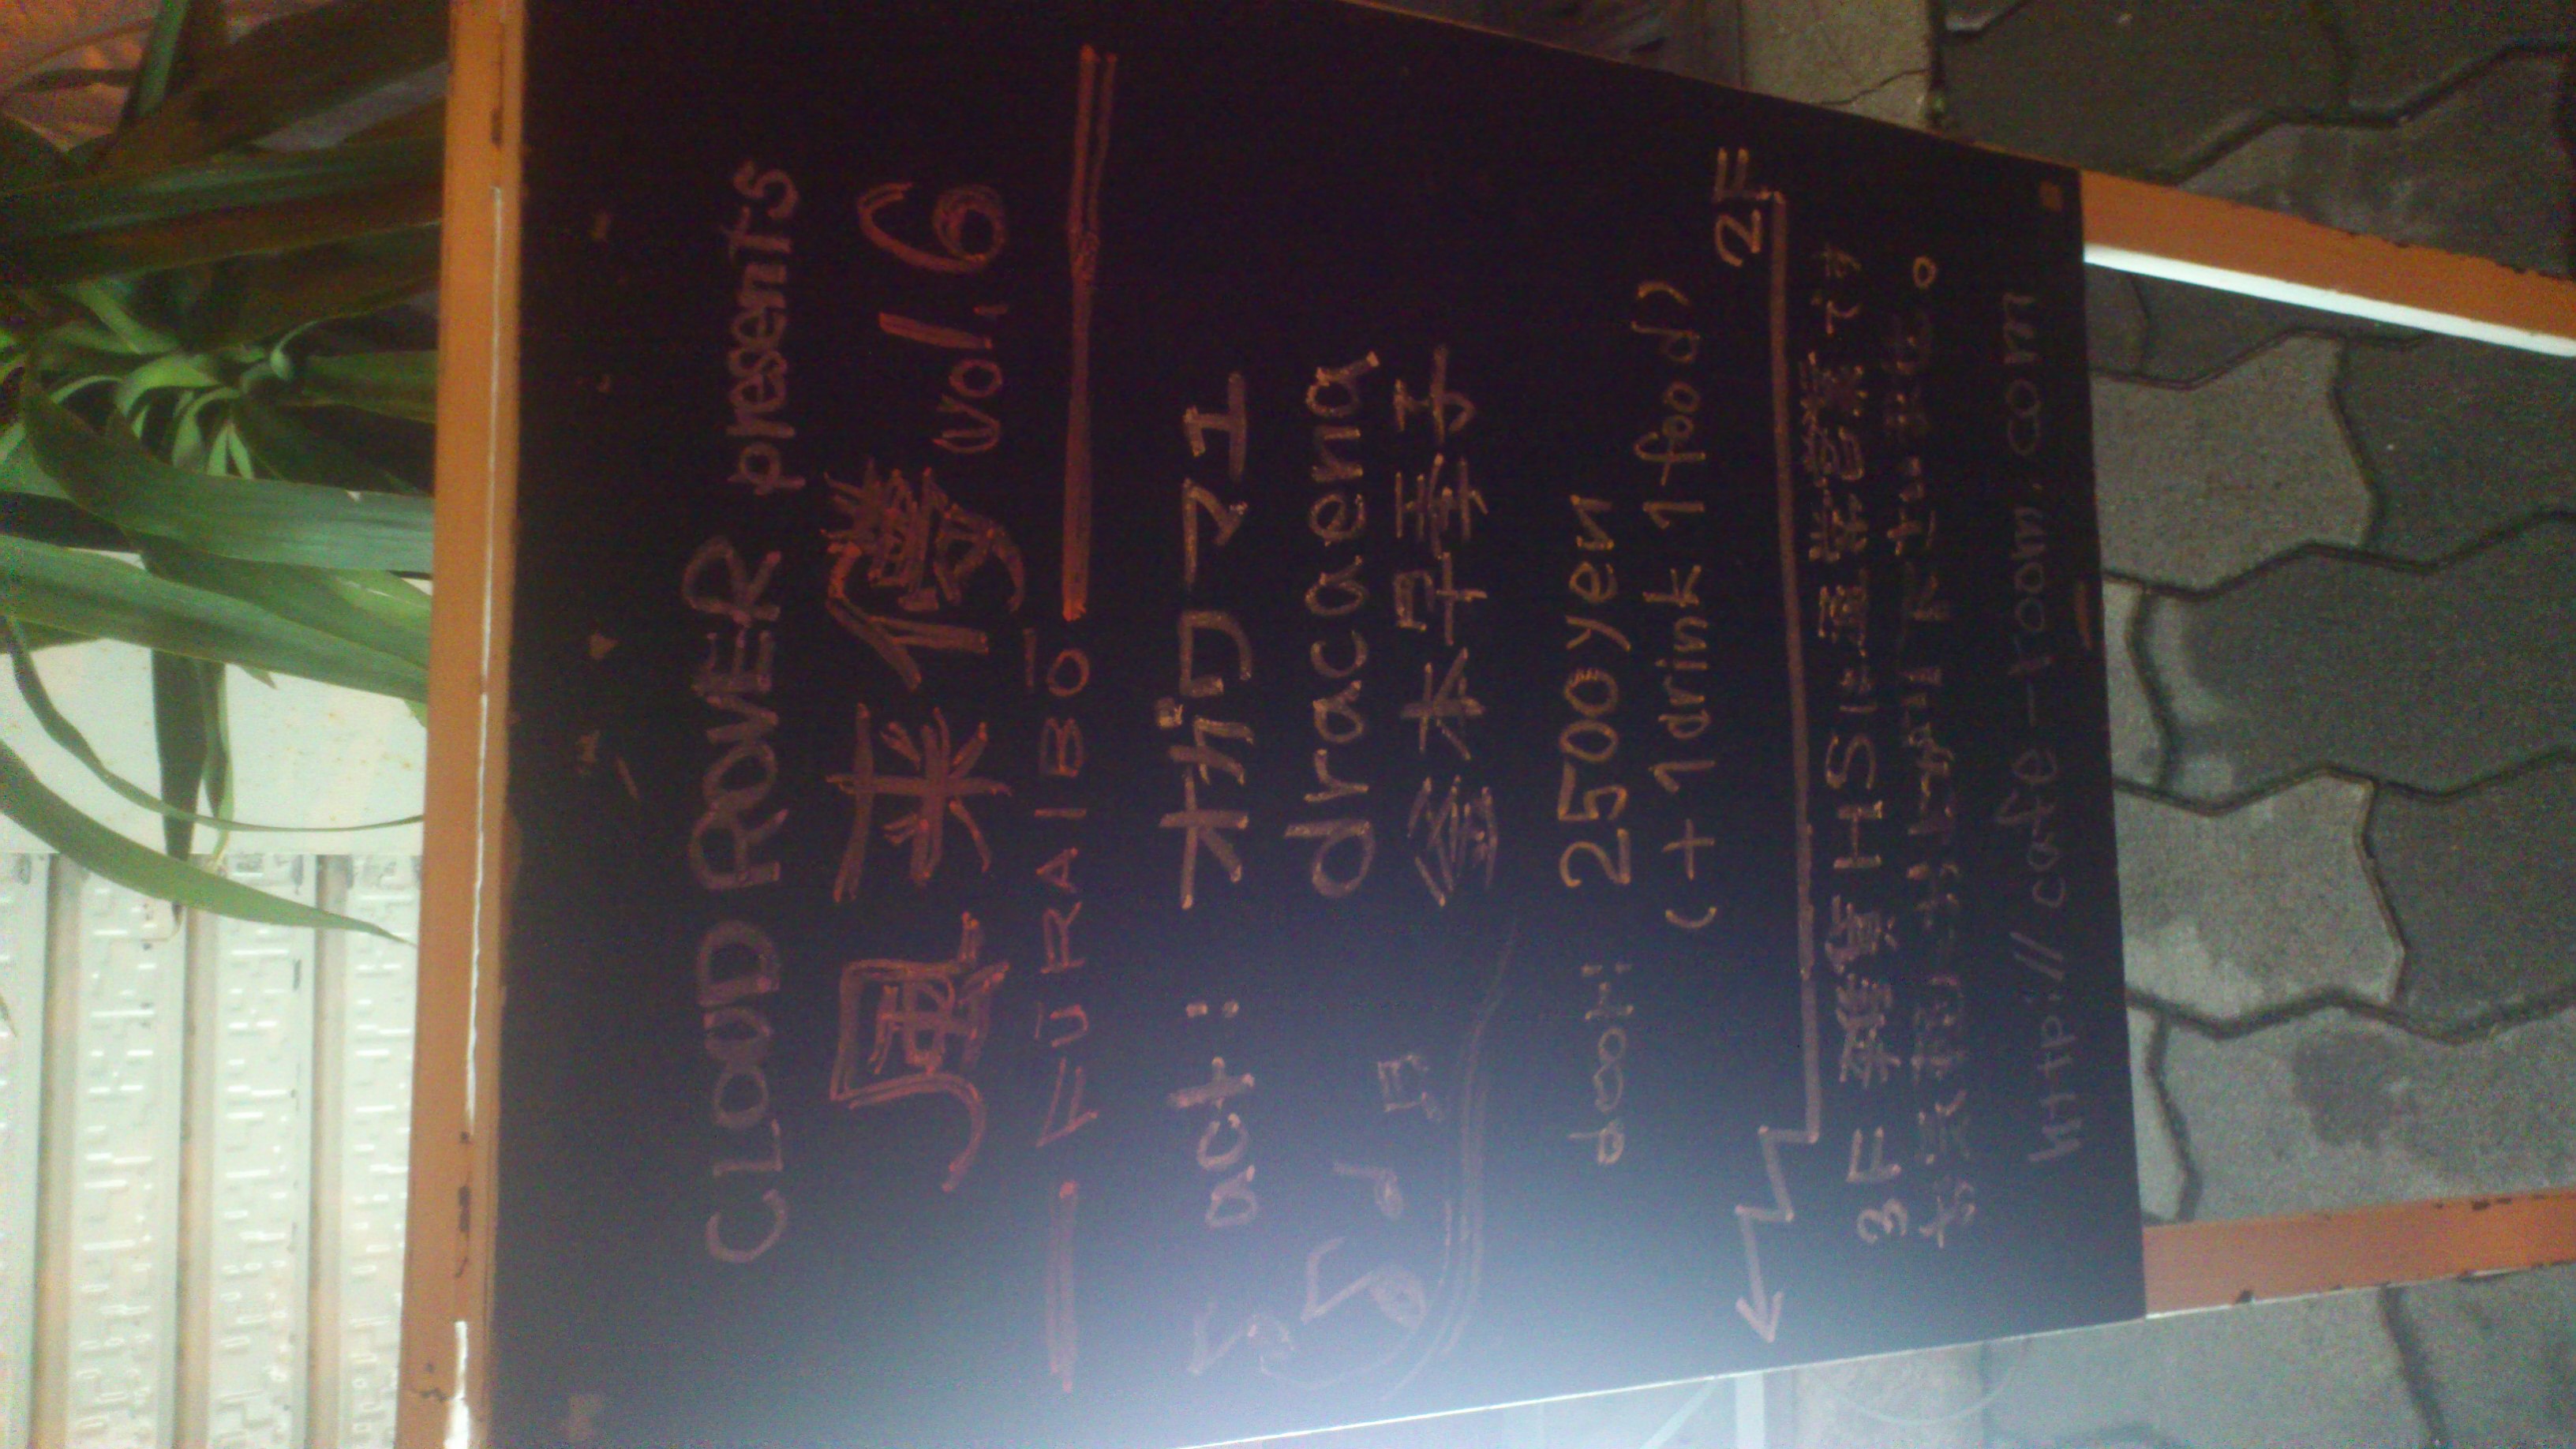 CLOUD ROVER presents
風来僧 vol.6
FŪRAIBŌ
act: オガワマユ
dracaena
鈴木早幸子
door: 2500yen
(+1drink 1food)
2F
3F 雑貨HSは通常営業です
お気軽にお上がり下さいませ。
http://cafe-room.com